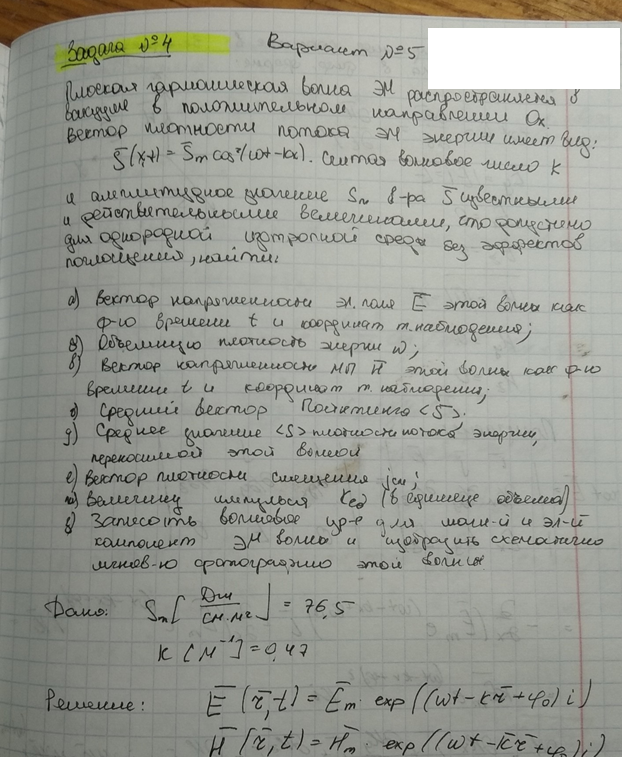 Задача №4 Вариант №5
Плоская гармоническая волна ЭМ распространяется в
вакууме в положительном направлении Ox.
Вектор плотности потока ЭМ энергии имеет вид:
S̄(x,t) = S̄m cos²(ωt-kx). Считая волновое число k
и амплитудное значение Sm в-ра S̄ известными
и действительными величинами, что допустимо
для однородной изотропной среды без эффектов
поглощения, найти:
а) Вектор напряженности эл. поля Ē этой волны как
ф-ю времени t и координат т. наблюдения;
Объемную плотность энергии w;
в) Вектор напряженности МП H̄ этой волны как ф-ю
времени t и координат т. наблюдения;
Средний вектор Пойнтинга <S̄>.
д) Среднее значение <S> плотности потока энергии,
переносимой этой волной
е) Вектор плотности смещения jсм;
Величину импульса Kед (в единице объема)
Записать волновое ур-е для магн-й и эл-й
компонент ЭМ волны и изобразить схематично
мгнов-ю фотографию этой волны
Дано: Sm [Дж/см·м²] = 76,5
k [м⁻¹] = 0,47
Решение: Ē(r̄,t) = Ēm · exp((ωt-k̄r̄+φ₀)i)
H̄(r̄,t) = H̄m · exp((ωt-k̄r̄+φ₀)i)